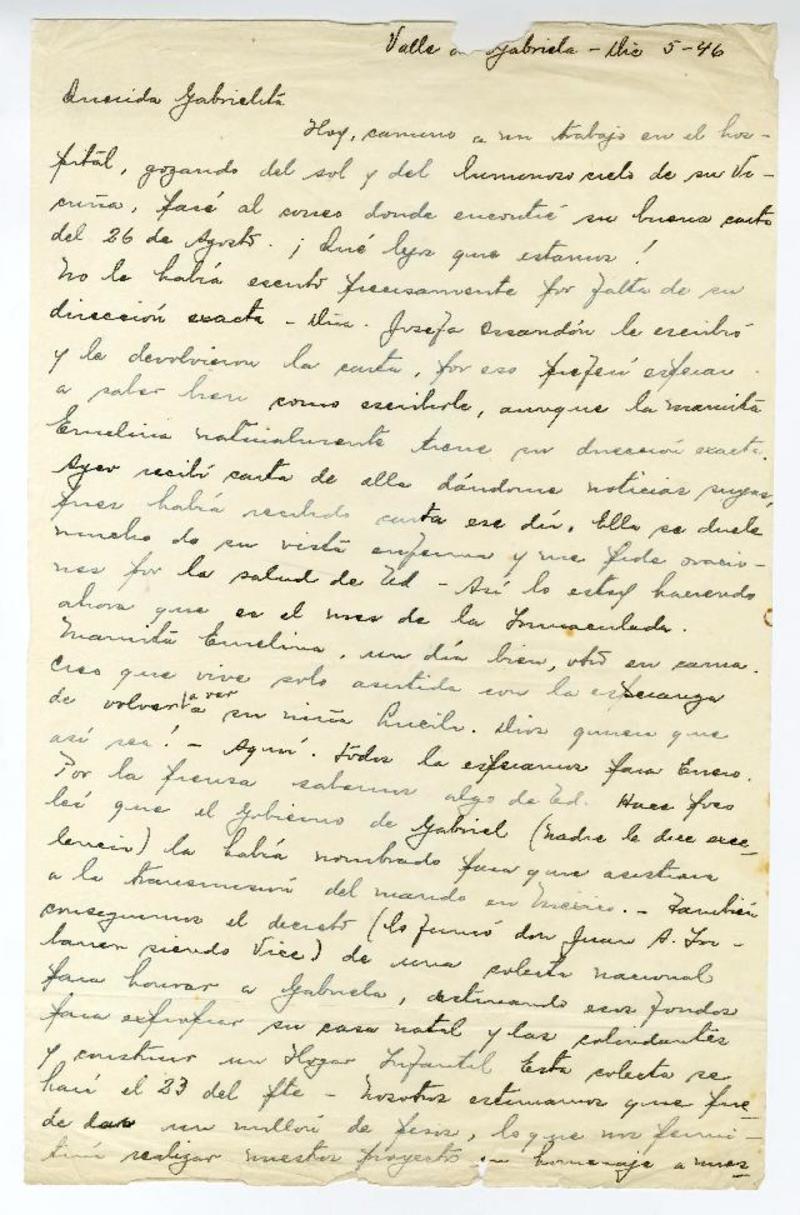 Valle de Gabriela - Dic 5-46
Querida Gabrielita
Hoy, camino a un trabajo en el hos-
pital, gozando del sol y del luminoso cielo de su Vi-
cuña, pasé al correo donde encontré su buena carta
del 26 de Agosto. ¡Qué lejos que estamos!
No le había escrito precisamente por falta de su
dirección exacta - Dña. Josefa Ossandón le escribió
y le devolvieron la carta, por eso preferí esperar
a saber bien como escribirle, aunque la mamita
Emelina naturalmente tiene su dirección exacta.
Ayer recibí carta de ella dándome noticias suyas,
pues había recibido carta ese día. Ella se duele
mucho de su vista enferma y me pide oracio-
nes por la salud de Ud - Así lo estoy haciendo
ahora que es el mes de la Inmaculada.
Mamita Emelina, un día bien, otro en cama.
Creo que vive solo asistida con la esperanza
de volver a ver a su niña Lucila. Dios quiera que
así sea! - Aquí. todos la esperamos para Enero.
Por la prensa sabemos algo de Ud. Hace poco
leí que el Gobierno de Gabriel (nadie le dice exce-
lencia) la había nombrado para que asistiera
a la transmisión del mando en México. - También
conseguimos el decreto (lo firmó don Juan A. Iri-
barren siendo Vice) de una colecta nacional
para honrar a Gabriela, destinando esos fondos
para expropiar su casa natal y las colindantes
y construir un Hogar Infantil Esta colecta se
hará el 23 del pte - Nosotros estimamos que pue-
de dar un millón de pesos, lo que nos permi-
tirá realizar nuestro proyecto en homenaje a nues-